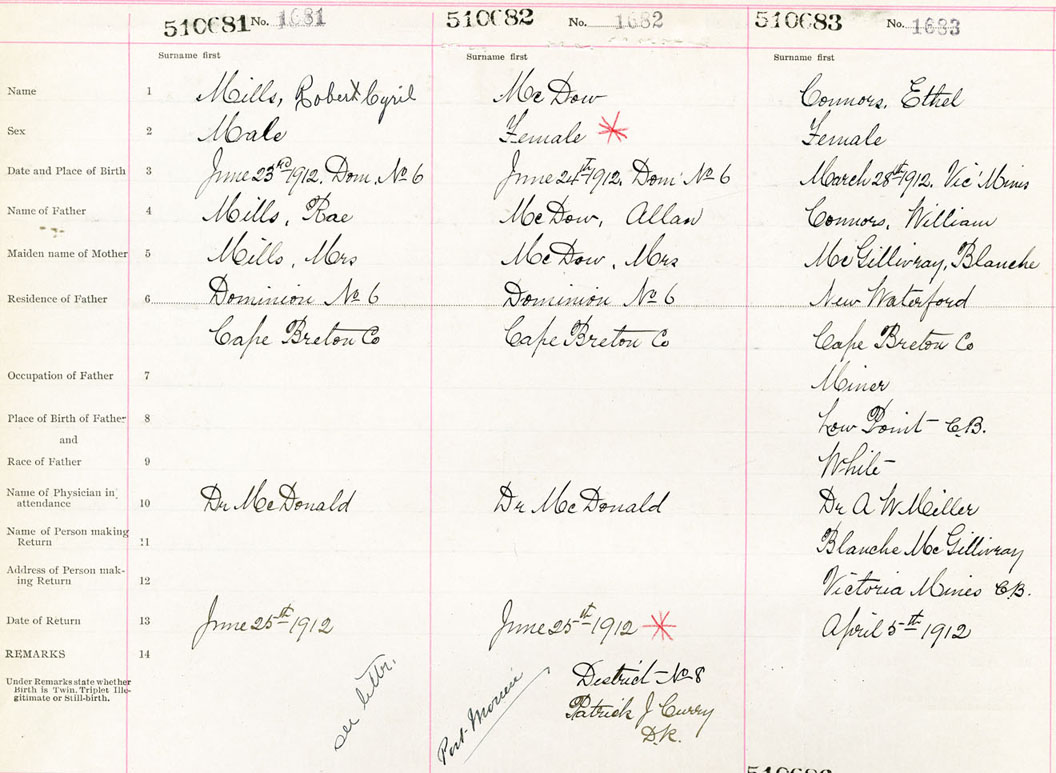 510681 No. 1681 510682 No. 1682 510683 No. 1683
Surname first Surname first Surname first
Name 1 Mills, Robert Cyril McDow Connors, Ethel
Sex 2 Male Female Female
Date and Place of Birth 3 June 23rd 1912. Dom. No 6 June 24th 1912. Dom. No 6 March 28th 1912. Vic' Mines
Name of Father 4 Mills, Rae McDow, Allan Connors, William
Maiden name of Mother 5 Mills, Mrs McDow, Mrs McGillivray, Blanche
Residence of Father 6 Dominion No 6 Dominion No 6 New Waterford
Cape Breton Co Cape Breton Co Cape Breton Co
Occupation of Father 7 Miner
Place of Birth of Father 8 Low Point C.B.
and
Race of Father 9 White
Name of Physician in
attendance 10 Dr McDonald Dr McDonald Dr A W Miller
Name of Person making
Return 11 Blanche McGillivray
Address of Person mak-
ing Return 12 Victoria Mines C.B.
Date of Return 13 June 25th 1912 June 25th 1912 April 5th 1912
REMARKS 14
Under Remarks state whether
Birth is Twin, Triplet Ille-
gitimate or Still-birth.
see lettr.
Port Morien
District No 8
Patrick J Curry
D.R.